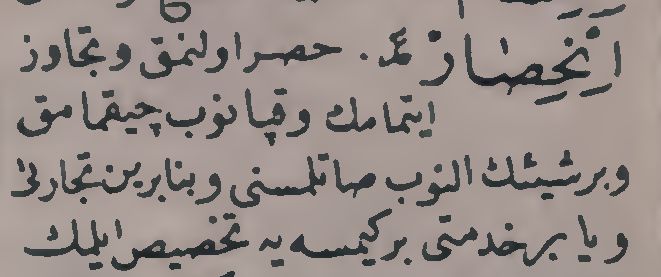 اِنْحِصَارْ ع. حصر اولنمق وتجاوز
ايتمامك وقپانوب چيقمامق
وبرشيئك النوب صاتلمسنى وبنابرين تجارتى
ويا برخدمتى بركيمسه يه تخصيص ايلمك